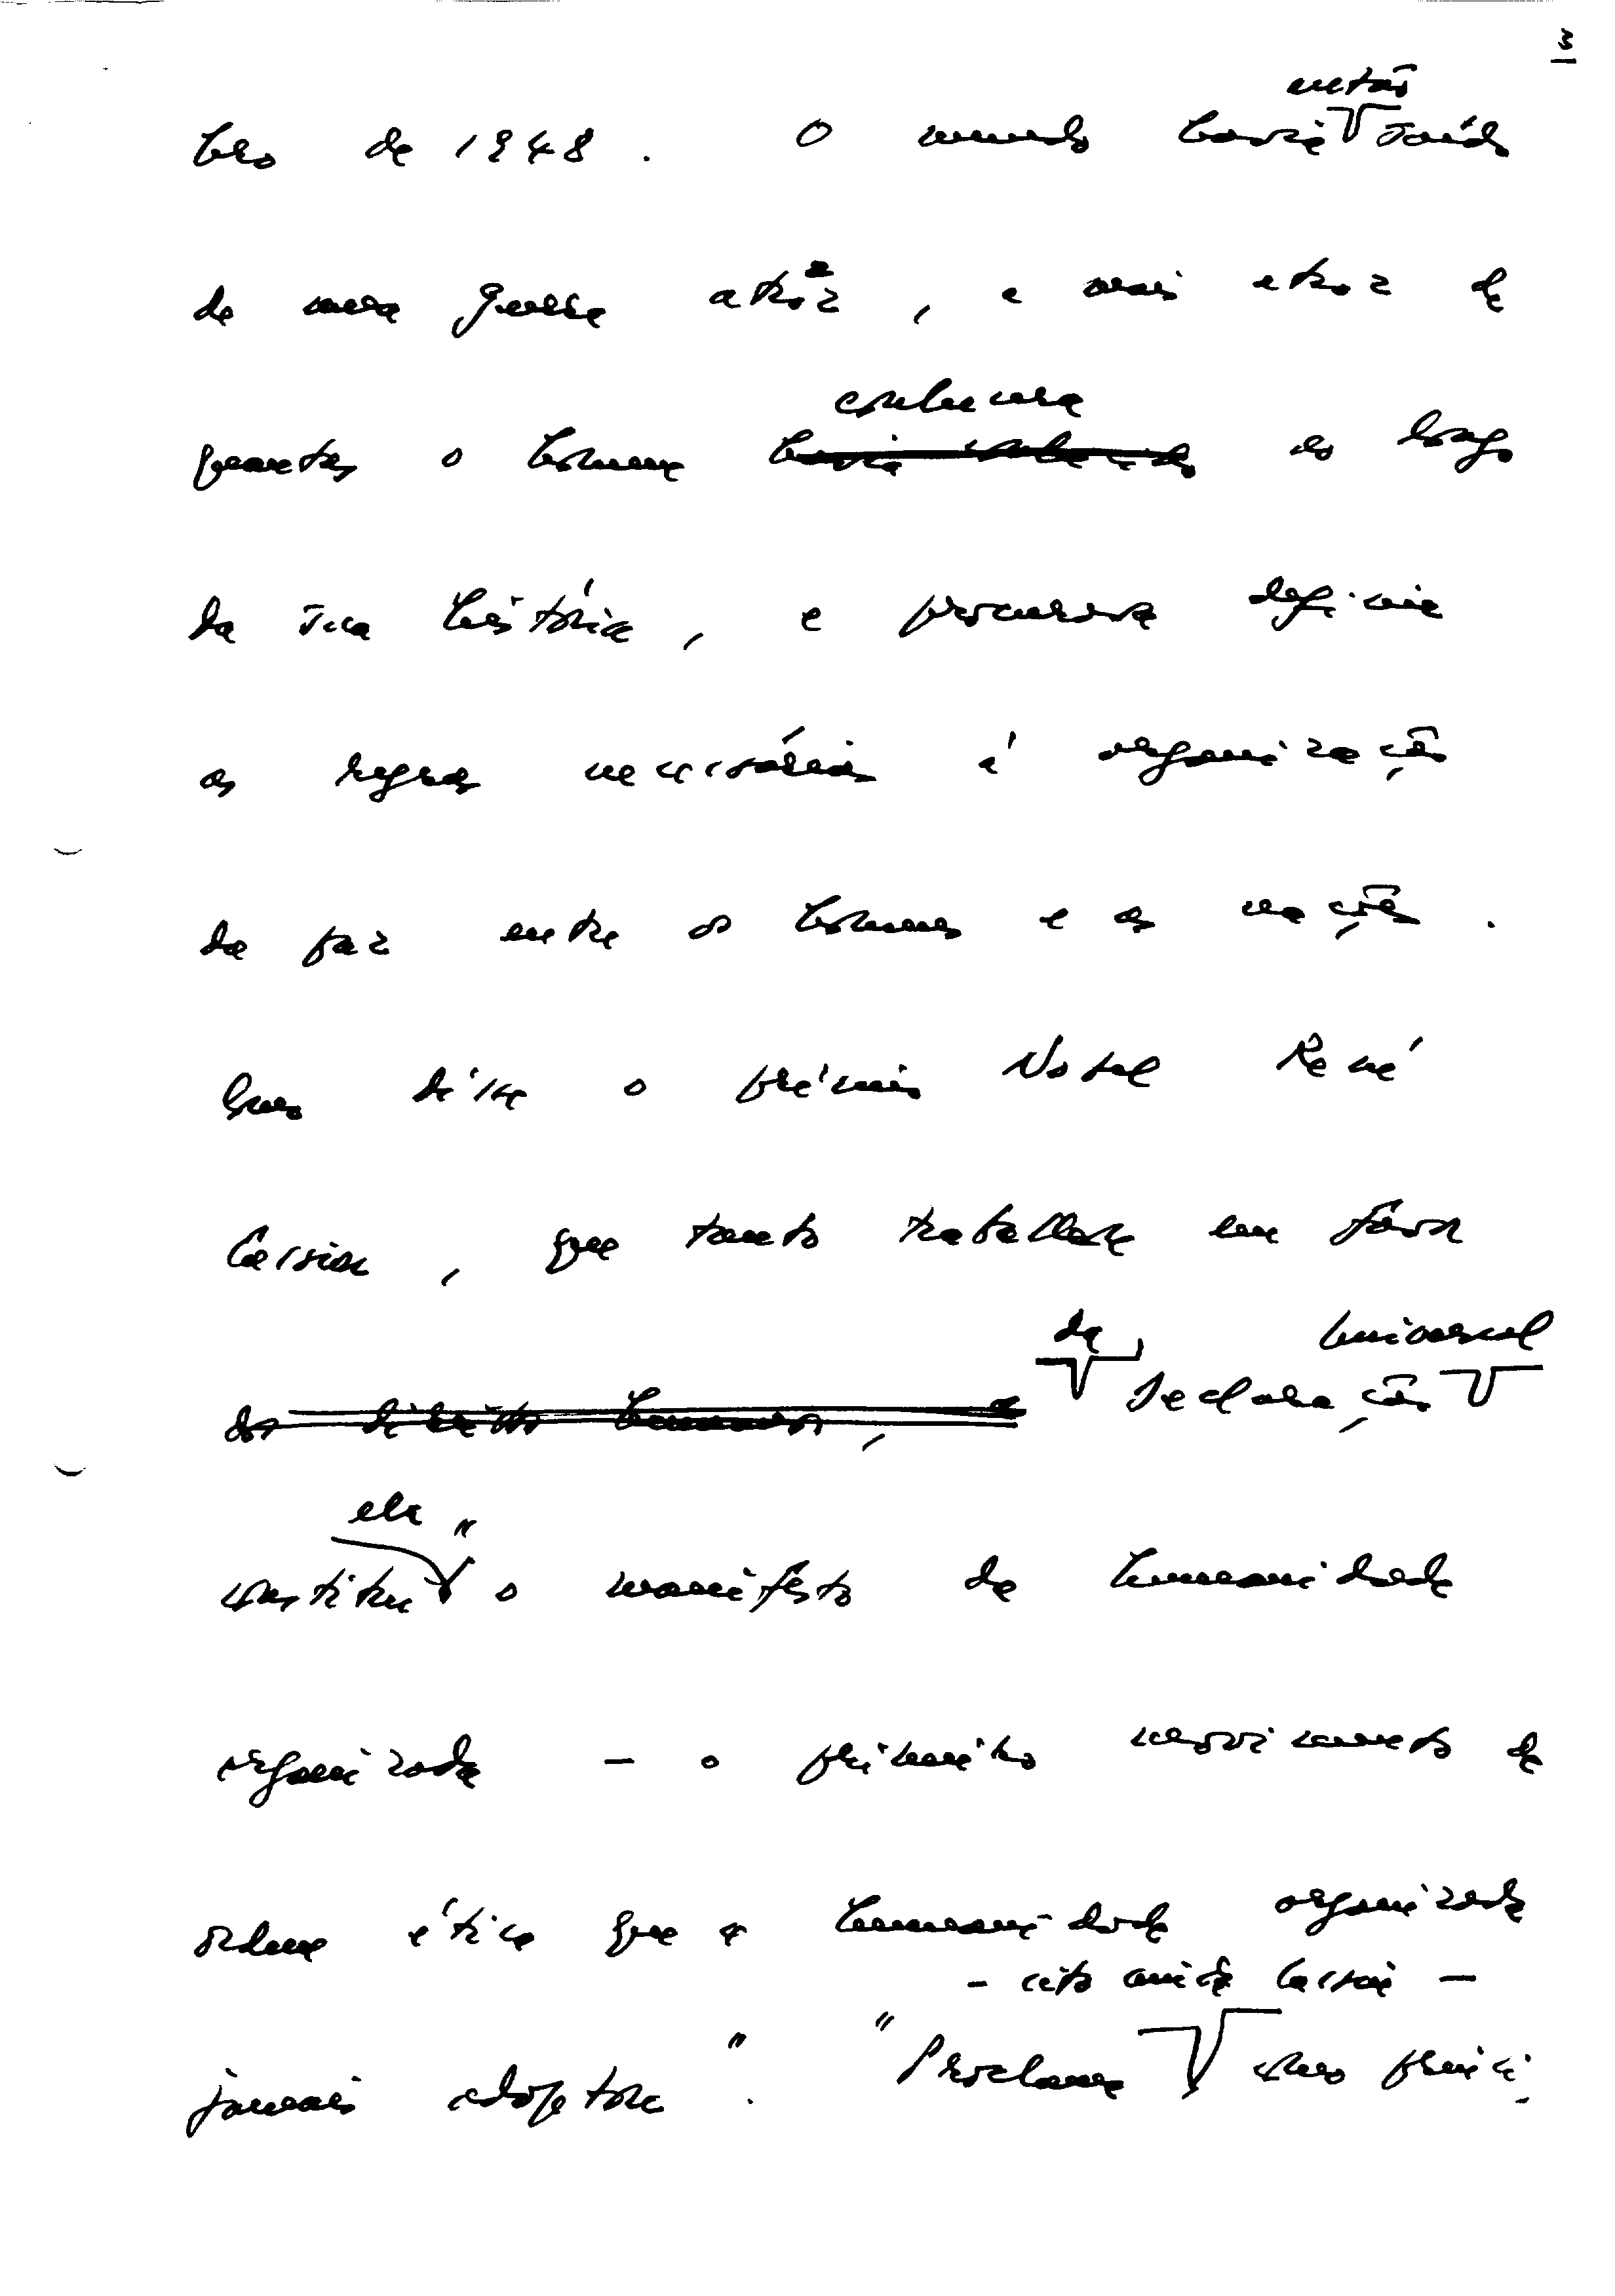 3
então
bro de 1948. O mundo havia saído
de uma guerra atroz, a mais atroz de
conhecera
quantas o homem havia conhecido ao longo
da sua história, e procurava definir
as regras necessárias à organização
da paz entre os homens e as nações.
disse o prémio Nobel René
Cassin, que tanto trabalhara em favor
da Universal
dos direitos humanos, a Declaração
ela "
constitui o manifesto da humanidade
organizada — o primeiro movimento de
ordem ética que a humanidade organizada
— cito ainda Cassin —
jamais adoptara". "Proclama como princí-